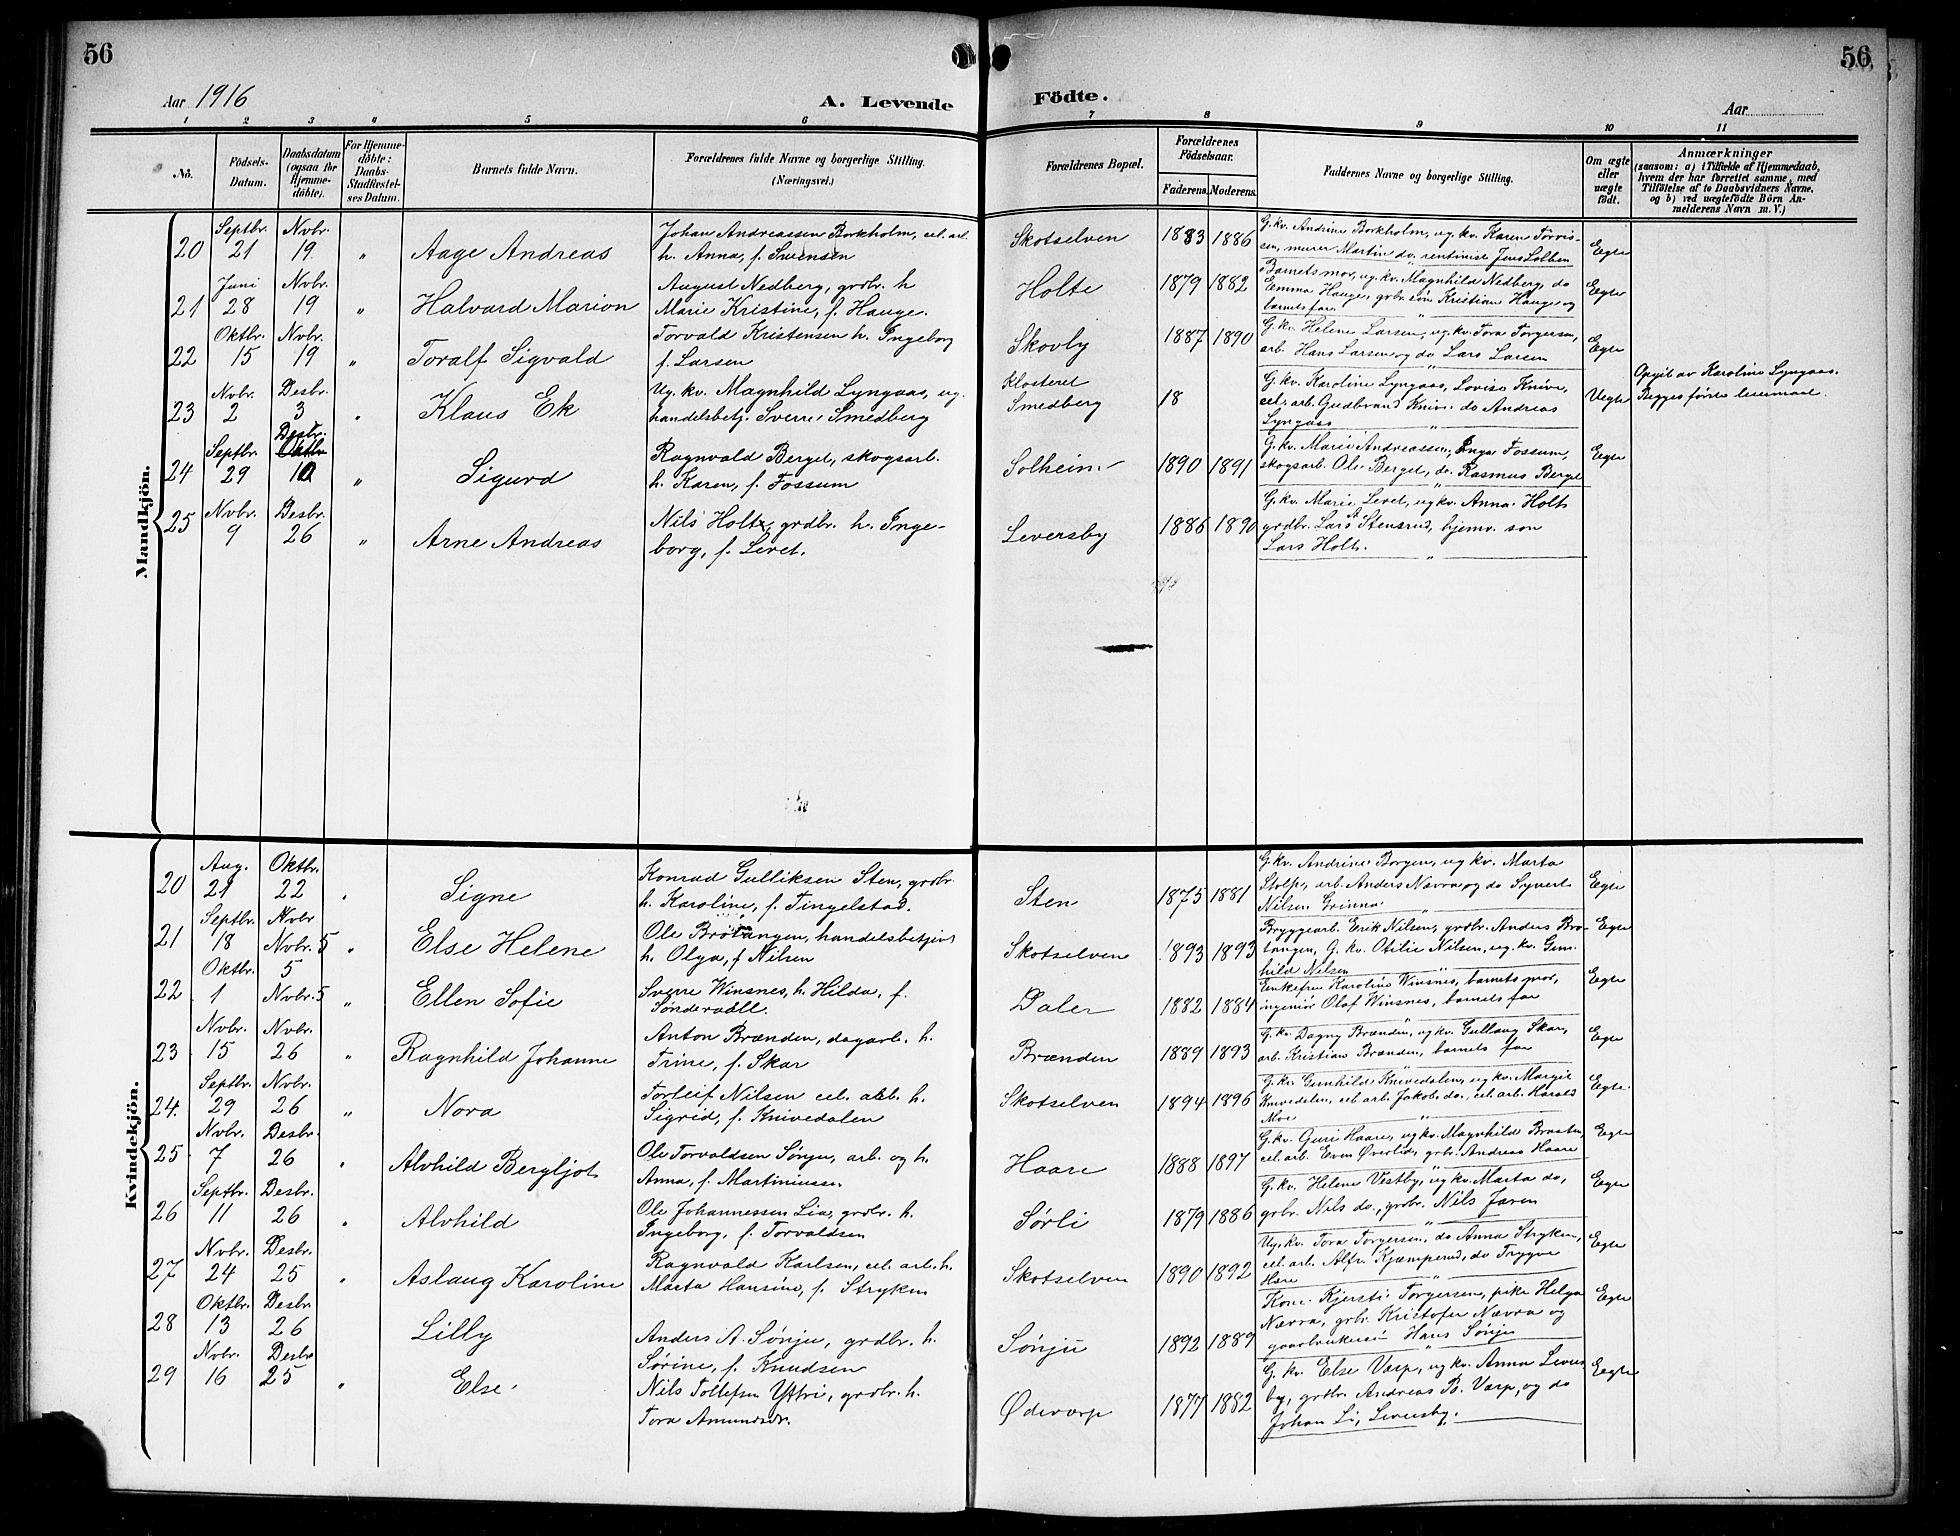 56
56
Aar 1916
A. Levende
Födte.
Aar
1 2 3 4 5 6 7 8 9 10 11
No.
Födsels-Datum.
Daabsdatum (ogsaa for Hjemme-döbte).
For Hjemme-döbte: Daabs-Stadfæstel-ses Datum.
Barnets fulde Navn.
Forældrenes fulde Navne og borgerlige Stilling.
(Næringsvei.)
Forældrenes Bopæl.
Forældrenes Födselsaar.
Faderens. Moderens.
Faddernes Navne og borgerlige Stilling.
Om ægte eller uægte födt.
Anmærkninger
(saasom: a) i Tilfælde af Hjemmedaab,
hvem der har forrettet samme, med
Tilföielse af to Daabsvidners Navne.
og b) ved uægtefödte Börn An-
melderens Navn m. V.)
Mandkjön.
20 Septbr. 21 Novbr. 19 " Aage Andreas
Johan Andreassen Borkholm, cel. arb.
h. Anna, f. Svensen
Skotselven 1883 1886
G. kv. Andrine Borkholm, ug. kv. Karen
murer Martin do, rentenist Jens
Egte
21 Juni 28 Novbr. 19 " Halvard Marion
August Nedberg, grdbr. h
Marie Kristine, f. Hauge.
Holte 1879 1882
Barnets mor, ug. kv. Magnhild Nedberg, do
Emma Hauge, grbr. søn Kristian Hauge og
barnets far.
Egte
22 Oktbr. 15 Novbr. 19 " Toralf Sigvald
Torvald Kristensen h. Ingeborg
f. Larsen
Skovly 1887 1890
G. kv. Helene Larsen, ug. kv. Tora Torgersen,
arb. Hans Larsen og do Lars Larsen
Egte
23 Novbr. 2 Desbr. 3 " Klaus Ek
Ug. kv. Magnhild Lyngaas, ug.
handelsbetj. Sverre Smedberg
Klosteret
Smedberg 18
G. kv. Karoline Lyngaas, Lovise Knive,
cel. arb. Gudbrand Knive do Andreas
Lyngaas
Uegte
Opgit av Karoline Lyngaas.
Begges første leiermaal.
24 Septbr. 29 Desbr. Oktbr. 10 " Sigurd
Ragnvald Berget, skogsarb.
h. Karen, f. Fossum
Solheim 1890 1891
G. kv. Marie Andreassen, Inga Fossum,
skogsarb. Ole Berget, do. Rasmus Berget
Egte
25 Novbr. 9 Desbr. 26 " Arne Andreas
Nils Holt, grdbr. h. Inge-
borg, f. Leret.
Leversby 1886 1890
G. kv. Marie Leret, ug kv. Anna Holt
grdbr. Lars A Stensrud, hjemv. søn
Lars Holt.
Kvindekjön.
20 Aug. 29 Oktbr. 22 " Signe
Konrad Gulliksen Sten, grdbr.
h. Karoline, f. Tingelstad.
Sten 1875 1881
G. kv. Andrine Borgen, ug kv. Marta
Stolp, arb. Anders Nævra og do Syvert
Nilsen
Egte
21 Septbr. 18 Novbr. Novbr. 5 " Else Helene
Ole Brøtangen, handelsbetjent
h. Olga, f Nilsen
Skotselven 1893 1893
Bryggearb. Erik Nilsen, grdbr. Anders Brø-
tangen, G. kv. Otilie Nilsen, ug. kv. Gun-
hild Nilsen
Egte
22 Oktbr. 1 5 Novbr. 5 " Ellen Sofie
Sverre Winsnes, h. Hilda, f.
Sønderaall.
Daler 1882 1884
Enkefru Karoline Winsnes, barnets mor,
ingeniør Olaf Winsnes, barnets far
Egte
23 Novbr. 15 Novbr. 26 " Ragnhild Johanne
Anton Brænden, dagarb. h.
Trine, f. Skar
Brænden 1889 1893
G. kv. Dagny Brænden, ug kv. Gullaug Skar,
arb. Kristian Brænden, barnets far
Egte
24. Septbr. 29 Novbr. 26 " Nora
Torleif Nilsen cel. arb. h.
Sigrid, f. Knivedalen
Skotselven 1894 1896
G. kv. Gunhild Knivedalen, ug kv. Margit
Knivedalen, cel. arb Jakob do., cel. arb. Harald
Moe
Egte
25 Novbr. 7 Desbr. 26 " Alvhild Bergljot
Ole Torvaldsen Sønju, arb. og h.
Anna, f. Martiniussen
Haare 1888 1897
G. kv. Guri Haare, ug kv. Magnhild Braaten,
cel. arb. Even Øverlid, grbr. Andreas Haare
Egte
26 Septbr. 11 Desbr. 26 " Alvhild
Ole Johannessen Lia, grdbr. h.
Ingeborg, f. Torvaldsen
Sørli 1879 1886
G. kv. Helene Vestby, ug kv. Marta do,
grbr. Nils do., grdbr. Nils Jaren
Egte
27 Novbr. 24 Desbr. 25 " Aslaug Karoline
Ragnvald Karlsen, cel. arb. h.
Marta Hansine, f. Stryken
Skotselven 1890 1892
Ug. kv. Tora Torgersen, do Anna Stryken,
cel. arb. Alfr. Kjæmperud, do Trygve
Hære
Egte
28 Oktbr. 13 Desbr. 26 Lilly
Anders A. Sønju, grdbr. h.
Sørine, f. Knudsen
Sønju 1892 1889
Kone Kjersti Torgersen, pike Helga
Nævra, grbr. Kristofer Nævra og
gaardbrukersøn Hans Sønju
Egte
29 Novbr. 16 Desbr 25 " Else
Nils Tollefsen Yttri, grdbr. h.
Tora Amundsdr.
Ødevarp 1877 1882
G. kv. Else Varp, ug kv. Anna Levers
by, grdbr. Andreas B. Varp, og do
Johan Li, Leversby.
Egte